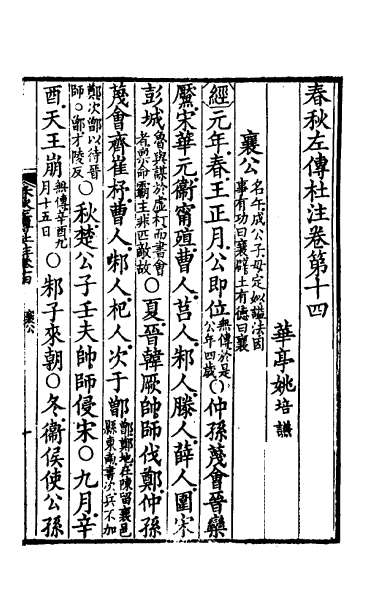 春秋左傳杜注卷第十四
華亭姚培謙
襄公名午成公子母定姒謚法因事有功曰襄辟土有德曰襄
經元年春王正月公即位無傳於是公年四歲○仲孫蔑會晉欒
黶宋華元衞甯殖曹人莒人邾人滕人薛人圍宋
彭城魯與謀於虛朾而書會者稟命霸主非匹敵故○夏晉韓厥帥師伐鄭仲孫
蔑會齊崔杼曹人邾人杞人次于鄫鄫鄭地在陳留襄邑縣東南書次兵不加
鄭次鄫以待晉師○鄫才陵反○秋楚公子壬夫帥師侵宋○九月辛
酉天王崩無傳辛酉九月十五日○邾子來朝○冬衞侯使公孫
襄公